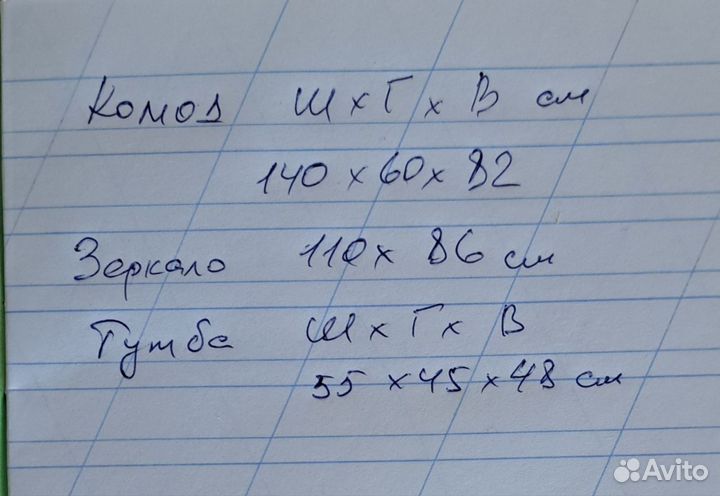 Комод Ш х Г х В см
140 х 60 х 82
Зеркало 110 х 86 см
Тумба Ш х Г х В
55 х 45 х 48 см
Avito